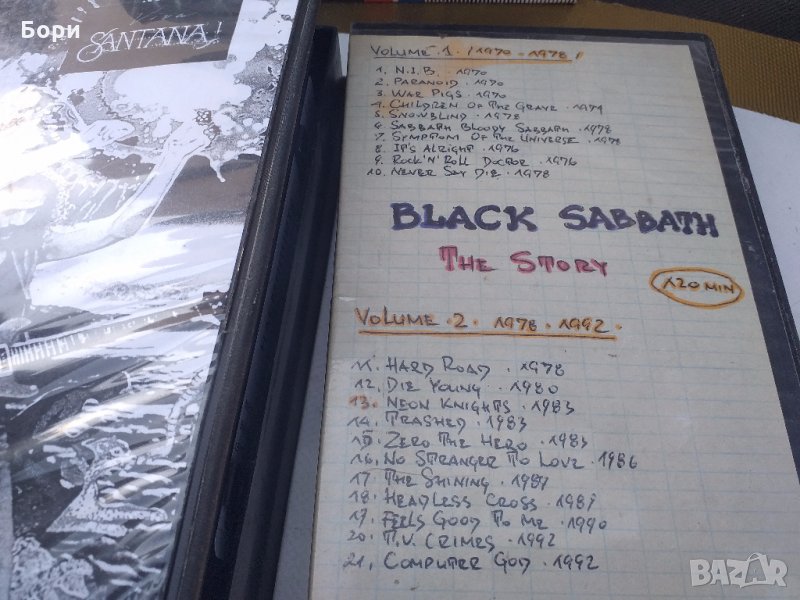 Бори
SANTANA!
VOLUME 1. (1970 - 1978)
1. N.I.B. . 1970
2. PARANOID . 1970
3. WAR PIGS . 1970
4. CHILDREN OF THE GRAVE . 1971
5. SNOWBLIND . 1978
6. SABBATH BLOODY SABBATH . 1978
7. SYMPTOM OF THE UNIVERSE . 1978
8. IT'S ALRIGHT . 1976
9. ROCK'N'ROLL DOCTOR . 1976
10. NEVER SAY DIE . 1978
BLACK SABBATH
THE STORY
120 MIN
VOLUME . 2 . 1978 . 1992 .
11. HARD ROAD . 1978
12. DIE YOUNG . 1980
13. NEON KNIGHTS . 1983
14. TRASHED . 1983
15. ZERO THE HERO . 1983
16. NO STRANGER TO LOVE . 1986
17. THE SHINING . 1987
18. HEADLESS CROSS . 1989
19. FEELS GOOD TO ME . 1990
20. T.V. CRIMES . 1992
21. COMPUTER GOD . 1992
BAZAR